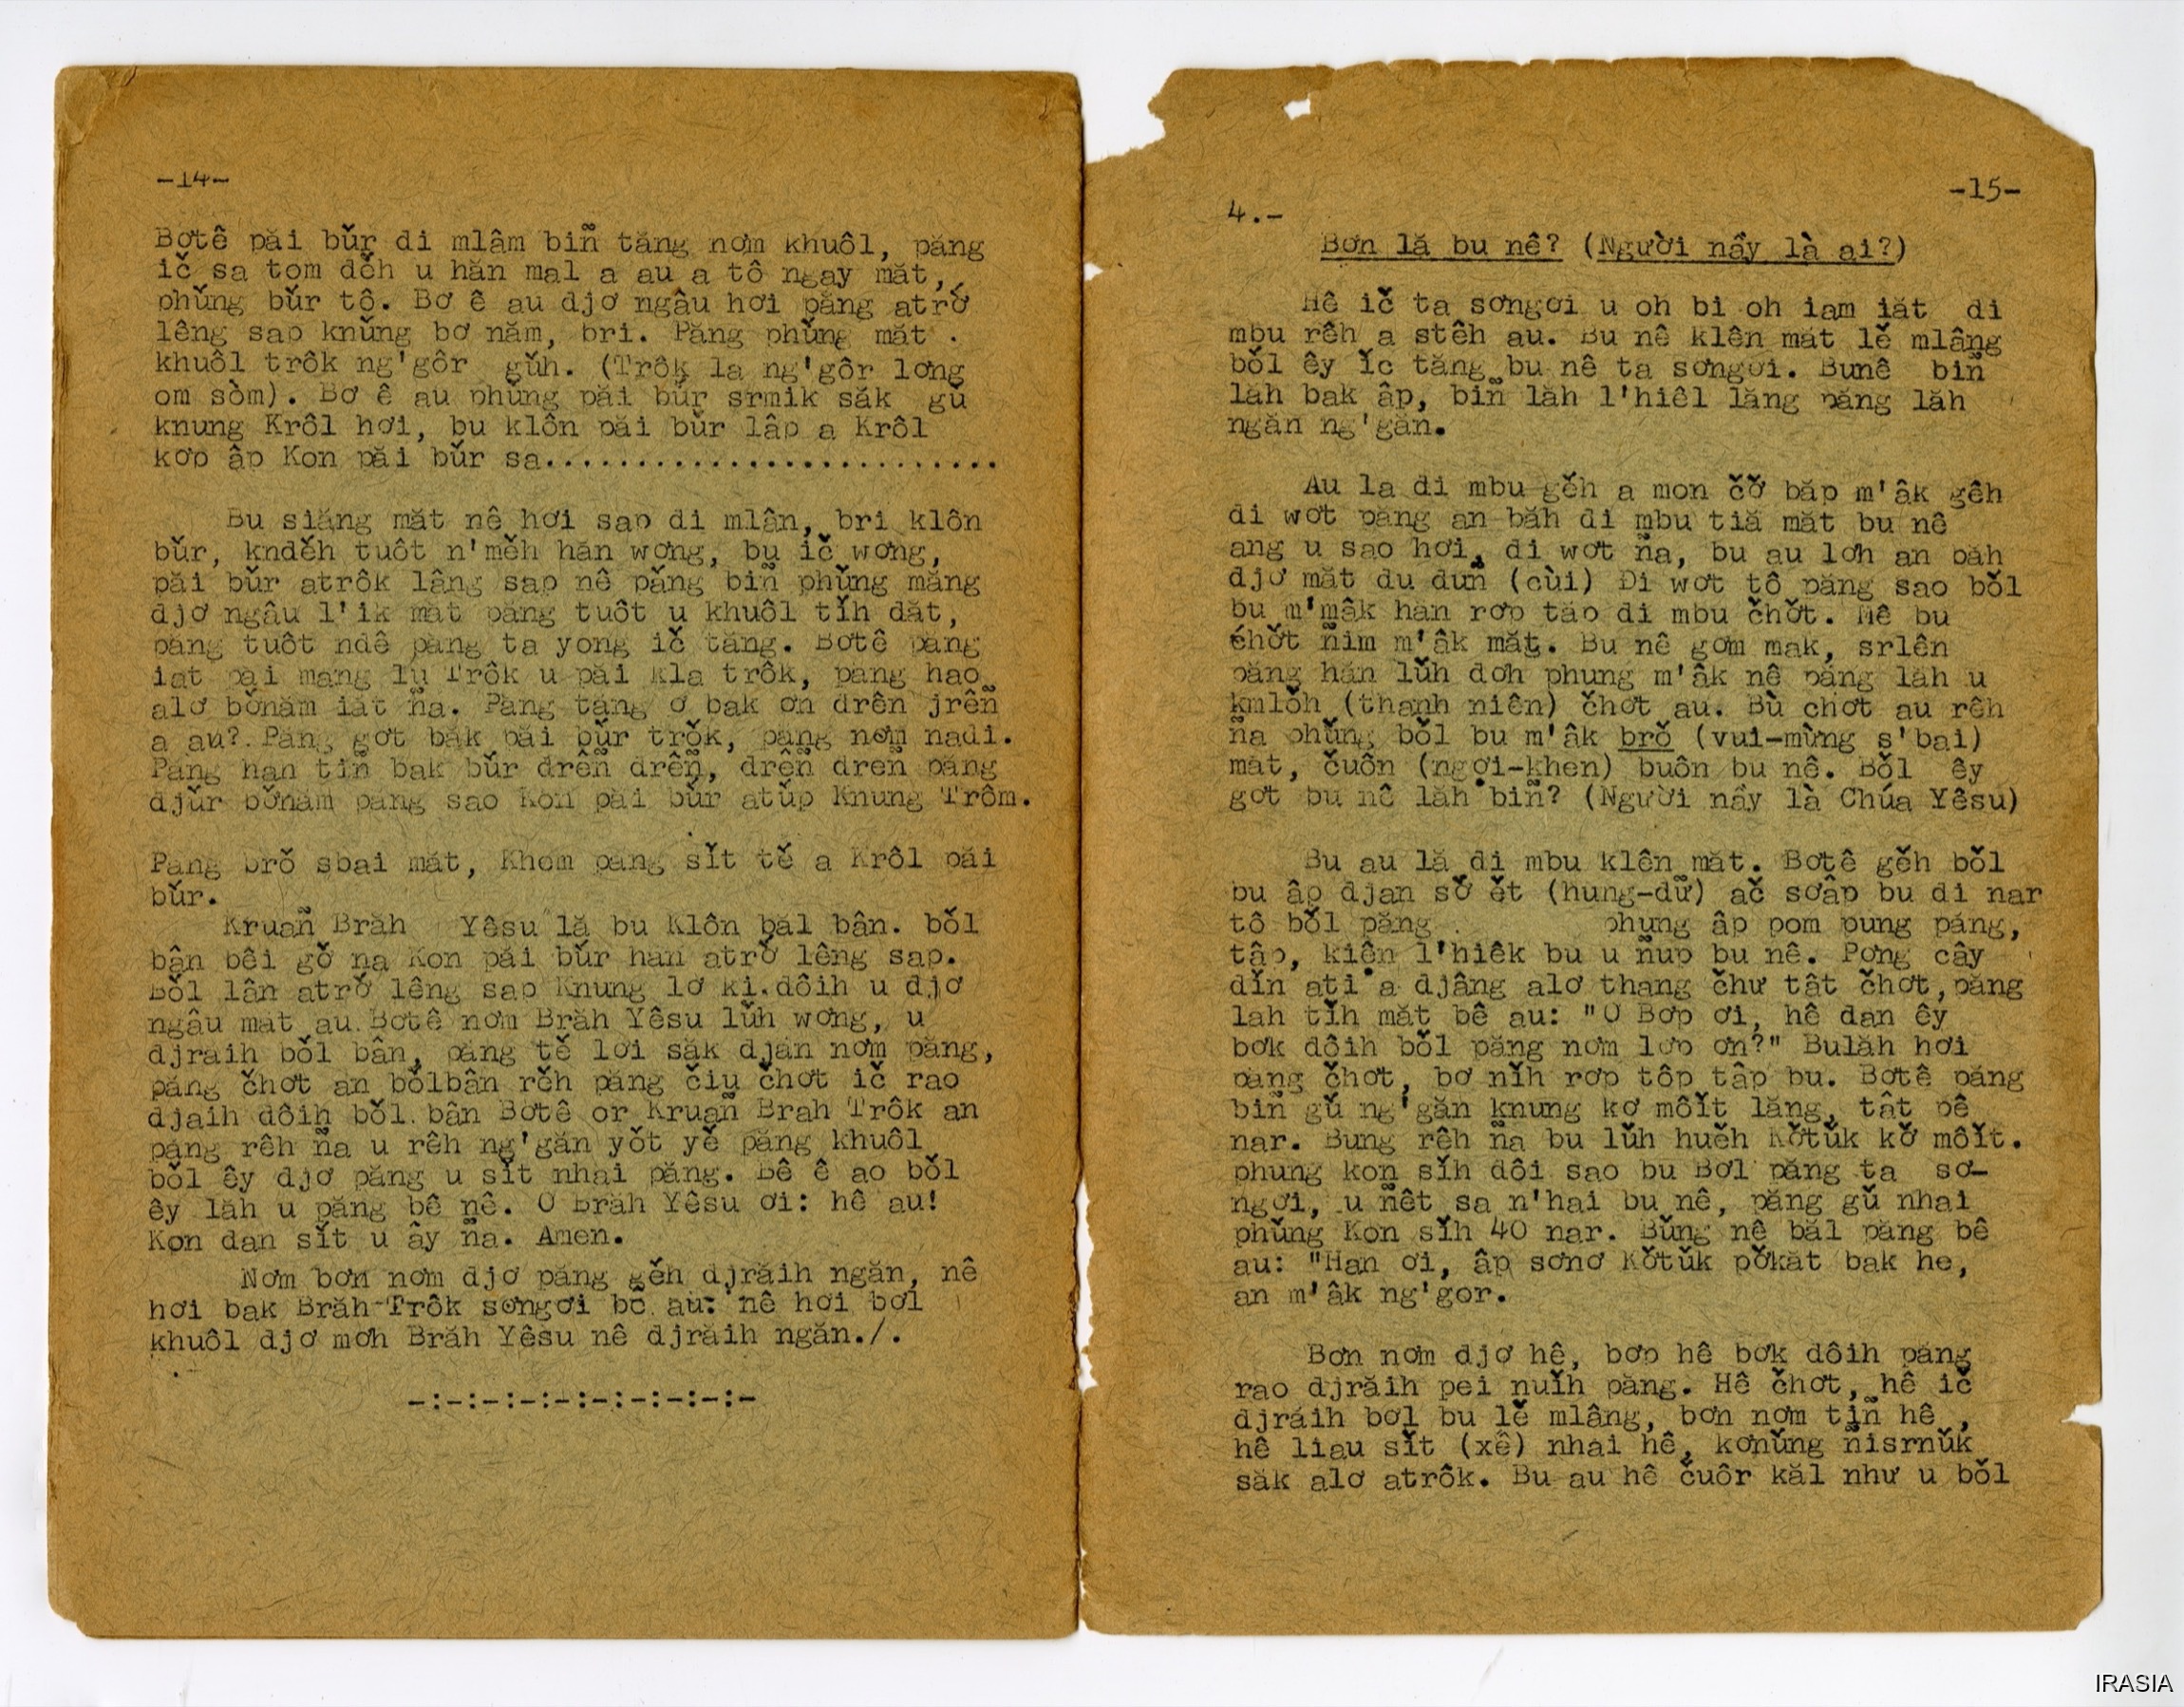 -14-
Bơtê păi bŭr di mlâm biñ tăng nơm khuôl, păng
ič sa tom dĕh u hăn mal a au a tô ngay măt,
phŭng bŭr tô. Bơ ê au djơ ngâu hơi păng atrở
lêng sap knŭng bơ năm, bri. Păng phŭng măt .
khuôl trôk ng'gôr gŭh. (Trôk la ng'gôr lơng
om sòm). Bơ ê au phŭng păi bŭr srmik săk gŭ
knung Krôl hơi, bu klôn păi bŭr lâp a Krôl
kơp âp Kon păi bŭr sa..........................
Bu siăng măt nê hơi sap di mlân, bri klôn
bŭr, kndĕh tuôt n'mĕh hăn wơng, bu ič wơng,
păi bŭr atrôk lâng sap nê păng biñ phŭng măng
djơ ngâu l'ik măt păng tuôt u khuôl tĭh dăt,
păng tuôt ndê păng ta yong ič tăng. Bơtê păng
iat păi mang lu Trôk u păi kla trôk, păng hao
alơ bơ̆năm iăt ña. Păng tăng ơ bak ơn drên jrêñ
a au? Păng gơt băk păi bŭr trôk, păng nơm nadi.
Păng han tiñ bak bŭr drêñ drêñ, drêñ drêñ păng
djŭr bơ̆năm păng sao Kon păi bŭr atŭp Knung Trôm.
Păng brŏ sbai măt, Khom păng sĭt tĕ a Krôl păi
bŭr.
Kruañ Brăh Yêsu lă bu Klôn băl bân. bŏl
bân bêi gơ̆ na Kon păi bŭr han atrở lêng sap.
Bŏl lân atrở lêng sap Knung lơ ki.dôih u djơ
ngâu măt au.Bơtê nơm Brăh Yêsu lŭh wơng, u
djrăih bŏl bân, păng tĕ lơi săk djăn nơm păng,
păng čhơt an bŏlbân rêh păng čiu čhơt ič rao
djaih dôih bŏl.bân Bơtê or Kruañ Brah Trôk an
păng rêh ña u rêh ng'găn yŏt yĕ păng khuôl
bŏl êy djơ păng u sĭt nhai păng. Bê ê ao bŏl
êy lăh u păng bê nê. Ơ Brăh Yêsu ơi: hê au!
Kon dan sĭt u ây ña. Amen.
Nơm bơn nơm djơ păng gĕh djrăih ngăn, nê
hơi bak Brăh-Trôk sơngơi bê au: nê hơi bơl
khuôl djơ mơh Brăh Yêsu nê djrăih ngăn./.
-:-:-:-:-:-:-:-:-:-
-15-
4.-
Bơn lă bu nê? (Người nầy là ai?)
Hê ič ta sơngơi u oh bi oh iam iăt di
mbu rêh a stêh au. Bu nê klên măt lĕ mlâng
bŏl êy ĭc tăng bu nê ta sơngơi. Bunê biñ
lăh bak âp, biñ lăh l'hiêl lăng păng lăh
ngăn ng'găn.
Au la di mbu gĕh a mon čơ̆ băp m'âk gêh
di wơt păng an băh di mbu tiă măt bu nê
ang u sao hơi, di wơt ña, bu au lơh an băh
djơ măt du duñ (cùi) Đi wơt tô păng sao bŏl
bu m'mâk hăn rơp tăo di mbu čhŏt. Mê bu
čhŏt ñim m'âk măt. Bu nê gơm mak, srlên
păng hăn lŭh doh phung m'âk nê păng lăh u
kmlŏh (thanh niên) čhơt au. Bù chơt au rêh
ña phŭng bŏl bu m'âk brŏ (vui-mừng s'bai)
măt, čuôn (ngợi-khen) buôn bu nê. Bŏl êy
gơt bu nê lăh biñ? (Người nầy là Chúa Yêsu)
Bu au lă di mbu klên măt. Bơtê gĕh bŏl
bu âp djan sơ̆ ĕt (hung-dữ) ač sơâp bu di nar
tô bŏl păng phung âp pom pung păng,
tâp, kiên l'hiêk bu u ñup bu nê. Pơng cây
dĭn ati a djâng alơ thang čhư tât čhơt,păng
lah tĭh măt bê au: "Ơ Bơp ơi, hê dan êy
bơk dôih bŏl păng nơm lơp ơn?" Bulăh hơi
păng čhơt, bơ nĭh rơp tôp tâp bu. Bơtê păng
biñ gŭ ng'găn knung kơ môĭt lăng, tât pê
nar. Bung rêh ña bu lŭh huĕh Kơ̆tŭk kơ̆ môĭt.
phung kon sĭh dôi sao bu Bơl păng ta sơ-
ngơi, u ñêt sa n'hai bu nê, păng gŭ nhai
phŭng Kon sĭh 40 nar. Bŭng nê băl păng bê
au: "Han ơi, âp sơnơ Kơ̆tŭk pơ̆kăt bak he,
an m'âk ng'gor.
Bơn nơm djơ hê, bơp hê bơk dôih păng
rao djrăih pei nuĭh păng. Hê čhơt, hê ič
djrăih bơl bu lĕ mlâng, bơn nơm tiñ hê ,
hê liau sĭt (xê) nhai hê, kơnŭng ñisrnŭk
săk alơ atrôk. Bu au hê čuôr kăl như u bŏl
IRASIA